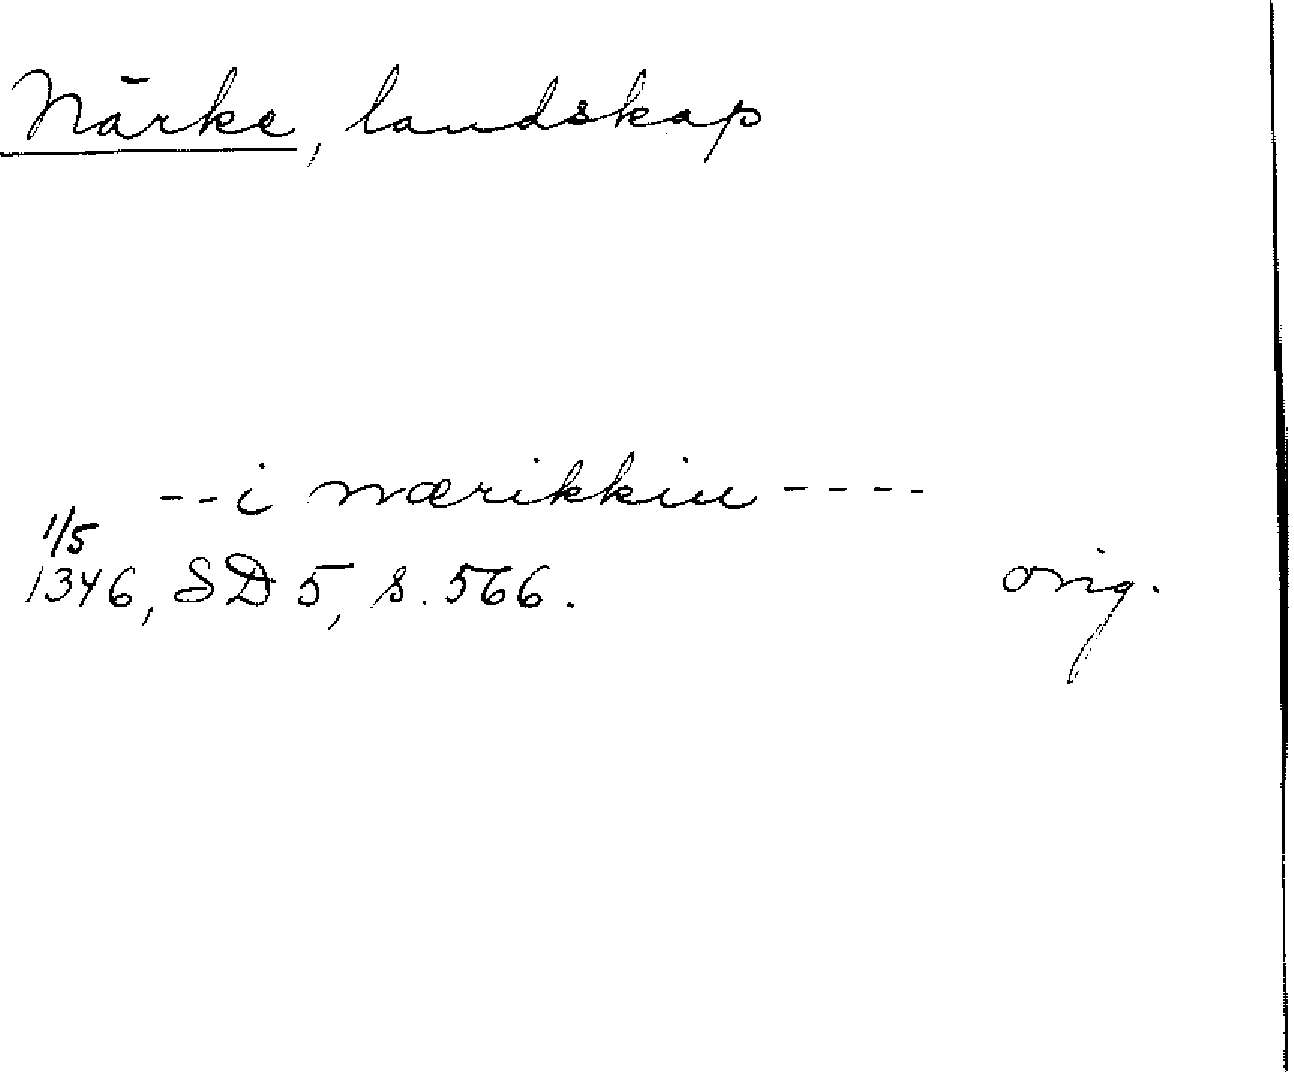 Närke, landskap
--i nærikkiu ----
1/5
1346, SD 5, s. 566. orig.